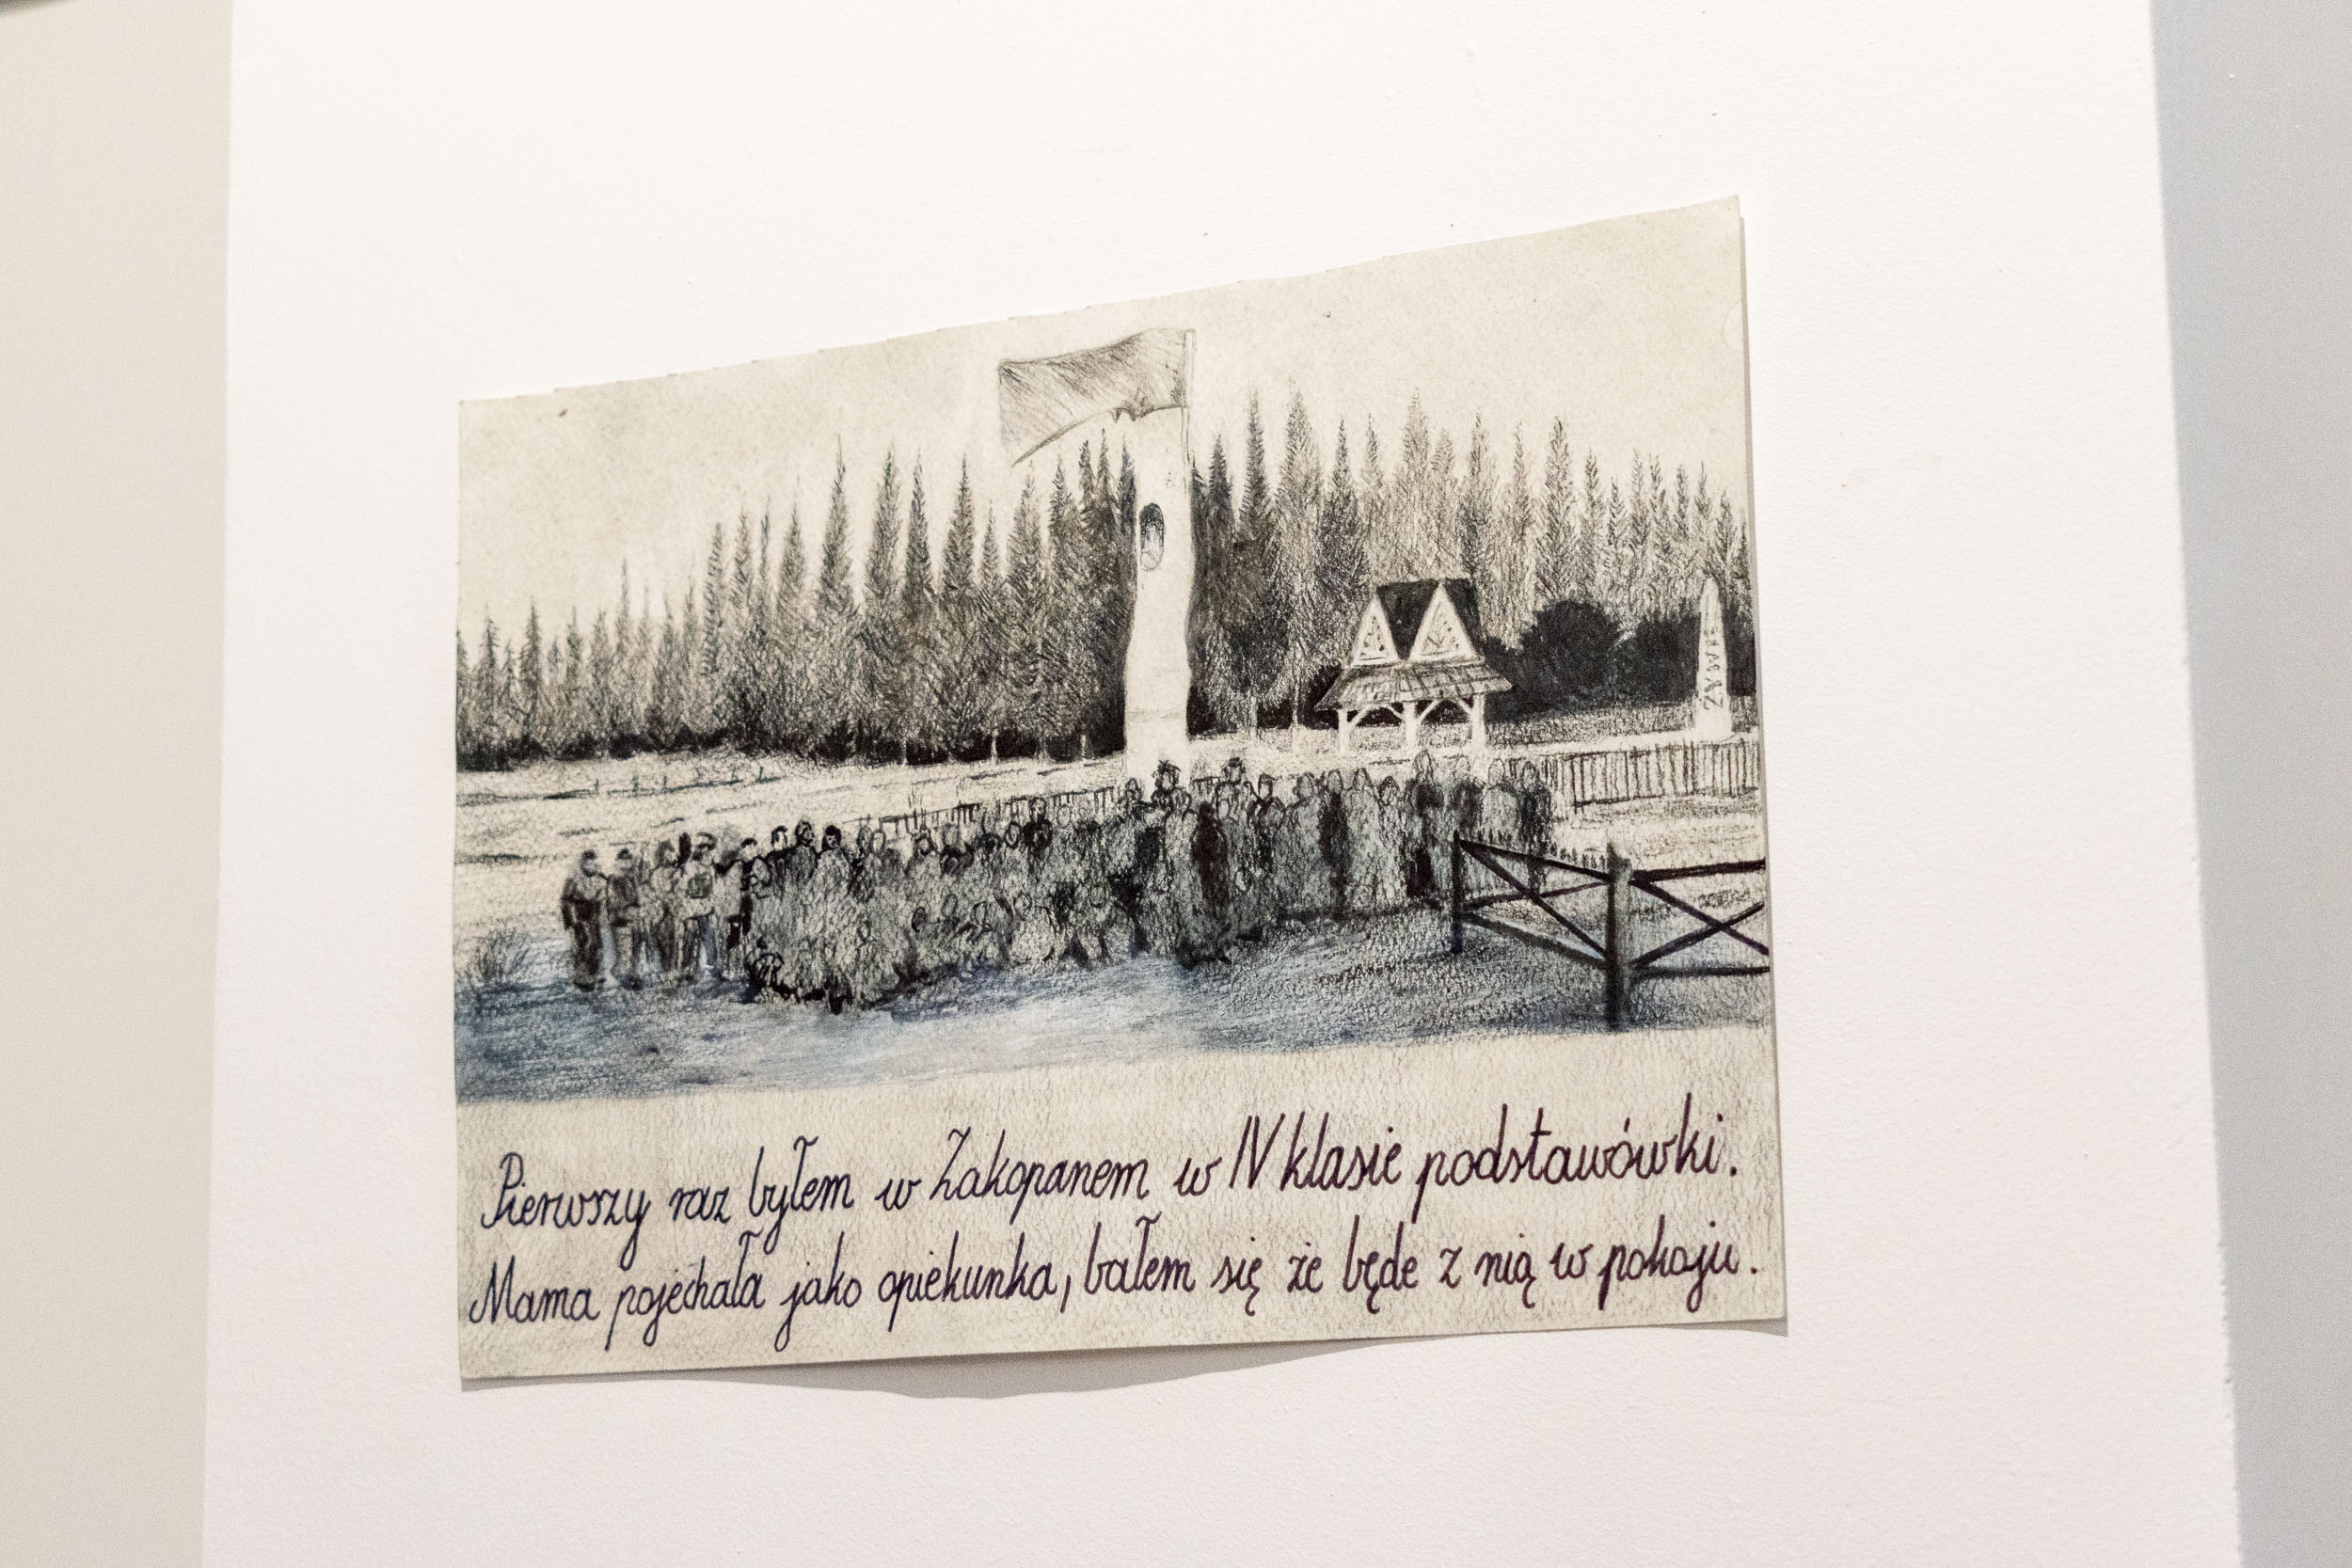 ŻYWE
Pierwszy raz byłem w Zakopanem w IV klasie podstawówki.
Mama pojechała jako opiekunka, bałem się że będe z nią w pokoju.